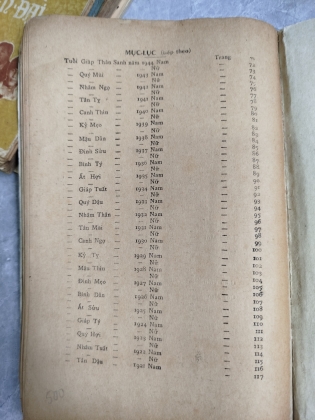 MỤC-LỤC (tiếp theo)
Tuổi Giáp Thân Sanh năm 1944 Nam Trang 72
— Nữ — 73
— Quý Mùi — 1943 Nam — 74
— Nữ — 75
— Nhâm Ngọ — 1942 Nam — 76
— Nữ — 77
— Tân Tỵ — 1941 Nam — 78
— Nữ — 79
— Canh Thìn — 1940 Nam — 80
— Nữ — 81
— Kỷ Mẹo — 1939 Nam — 82
— Nữ — 83
— Mậu Dần — 1938 Nam — 84
— Nữ — 85
— Đinh Sửu — 1937 Nam — 86
— Nữ — 87
— Bính Tý — 1936 Nam — 88
— Nữ — 89
— Ất Hợi — 1935 Nam — 90
— Nữ — 91
— Giáp Tuất — 1934 Nam — 92
— Nữ — 93
— Quý Dậu — 1933 Nam — 94
— Nữ — 95
— Nhâm Thân — 1932 Nam — 96
— Nữ — 97
— Tân Mùi — 1931 Nam — 98
— Nữ — 99
— Canh Ngọ — 1930 Nam — 100
— Nữ — 101
— Kỷ Tỵ — 1929 Nam — 102
— Nữ — 103
— Mậu Thìn — 1928 Nam — 104
— Nữ — 105
— Đinh Mẹo — 1927 Nam — 106
— Nữ — 107
— Bính Dần — 1926 Nam — 108
— Nữ — 109
— Ất Sửu — 1925 Nam — 110
— Nữ — 111
— Giáp Tý — 1924 Nam — 112
— Nữ — 113
— Quý Hợi — 1923 Nam — 114
— Nữ — 115
— Nhâm Tuất — 1922 Nam — 116
— Nữ — 117
— Tân Dậu — 1921 Nam